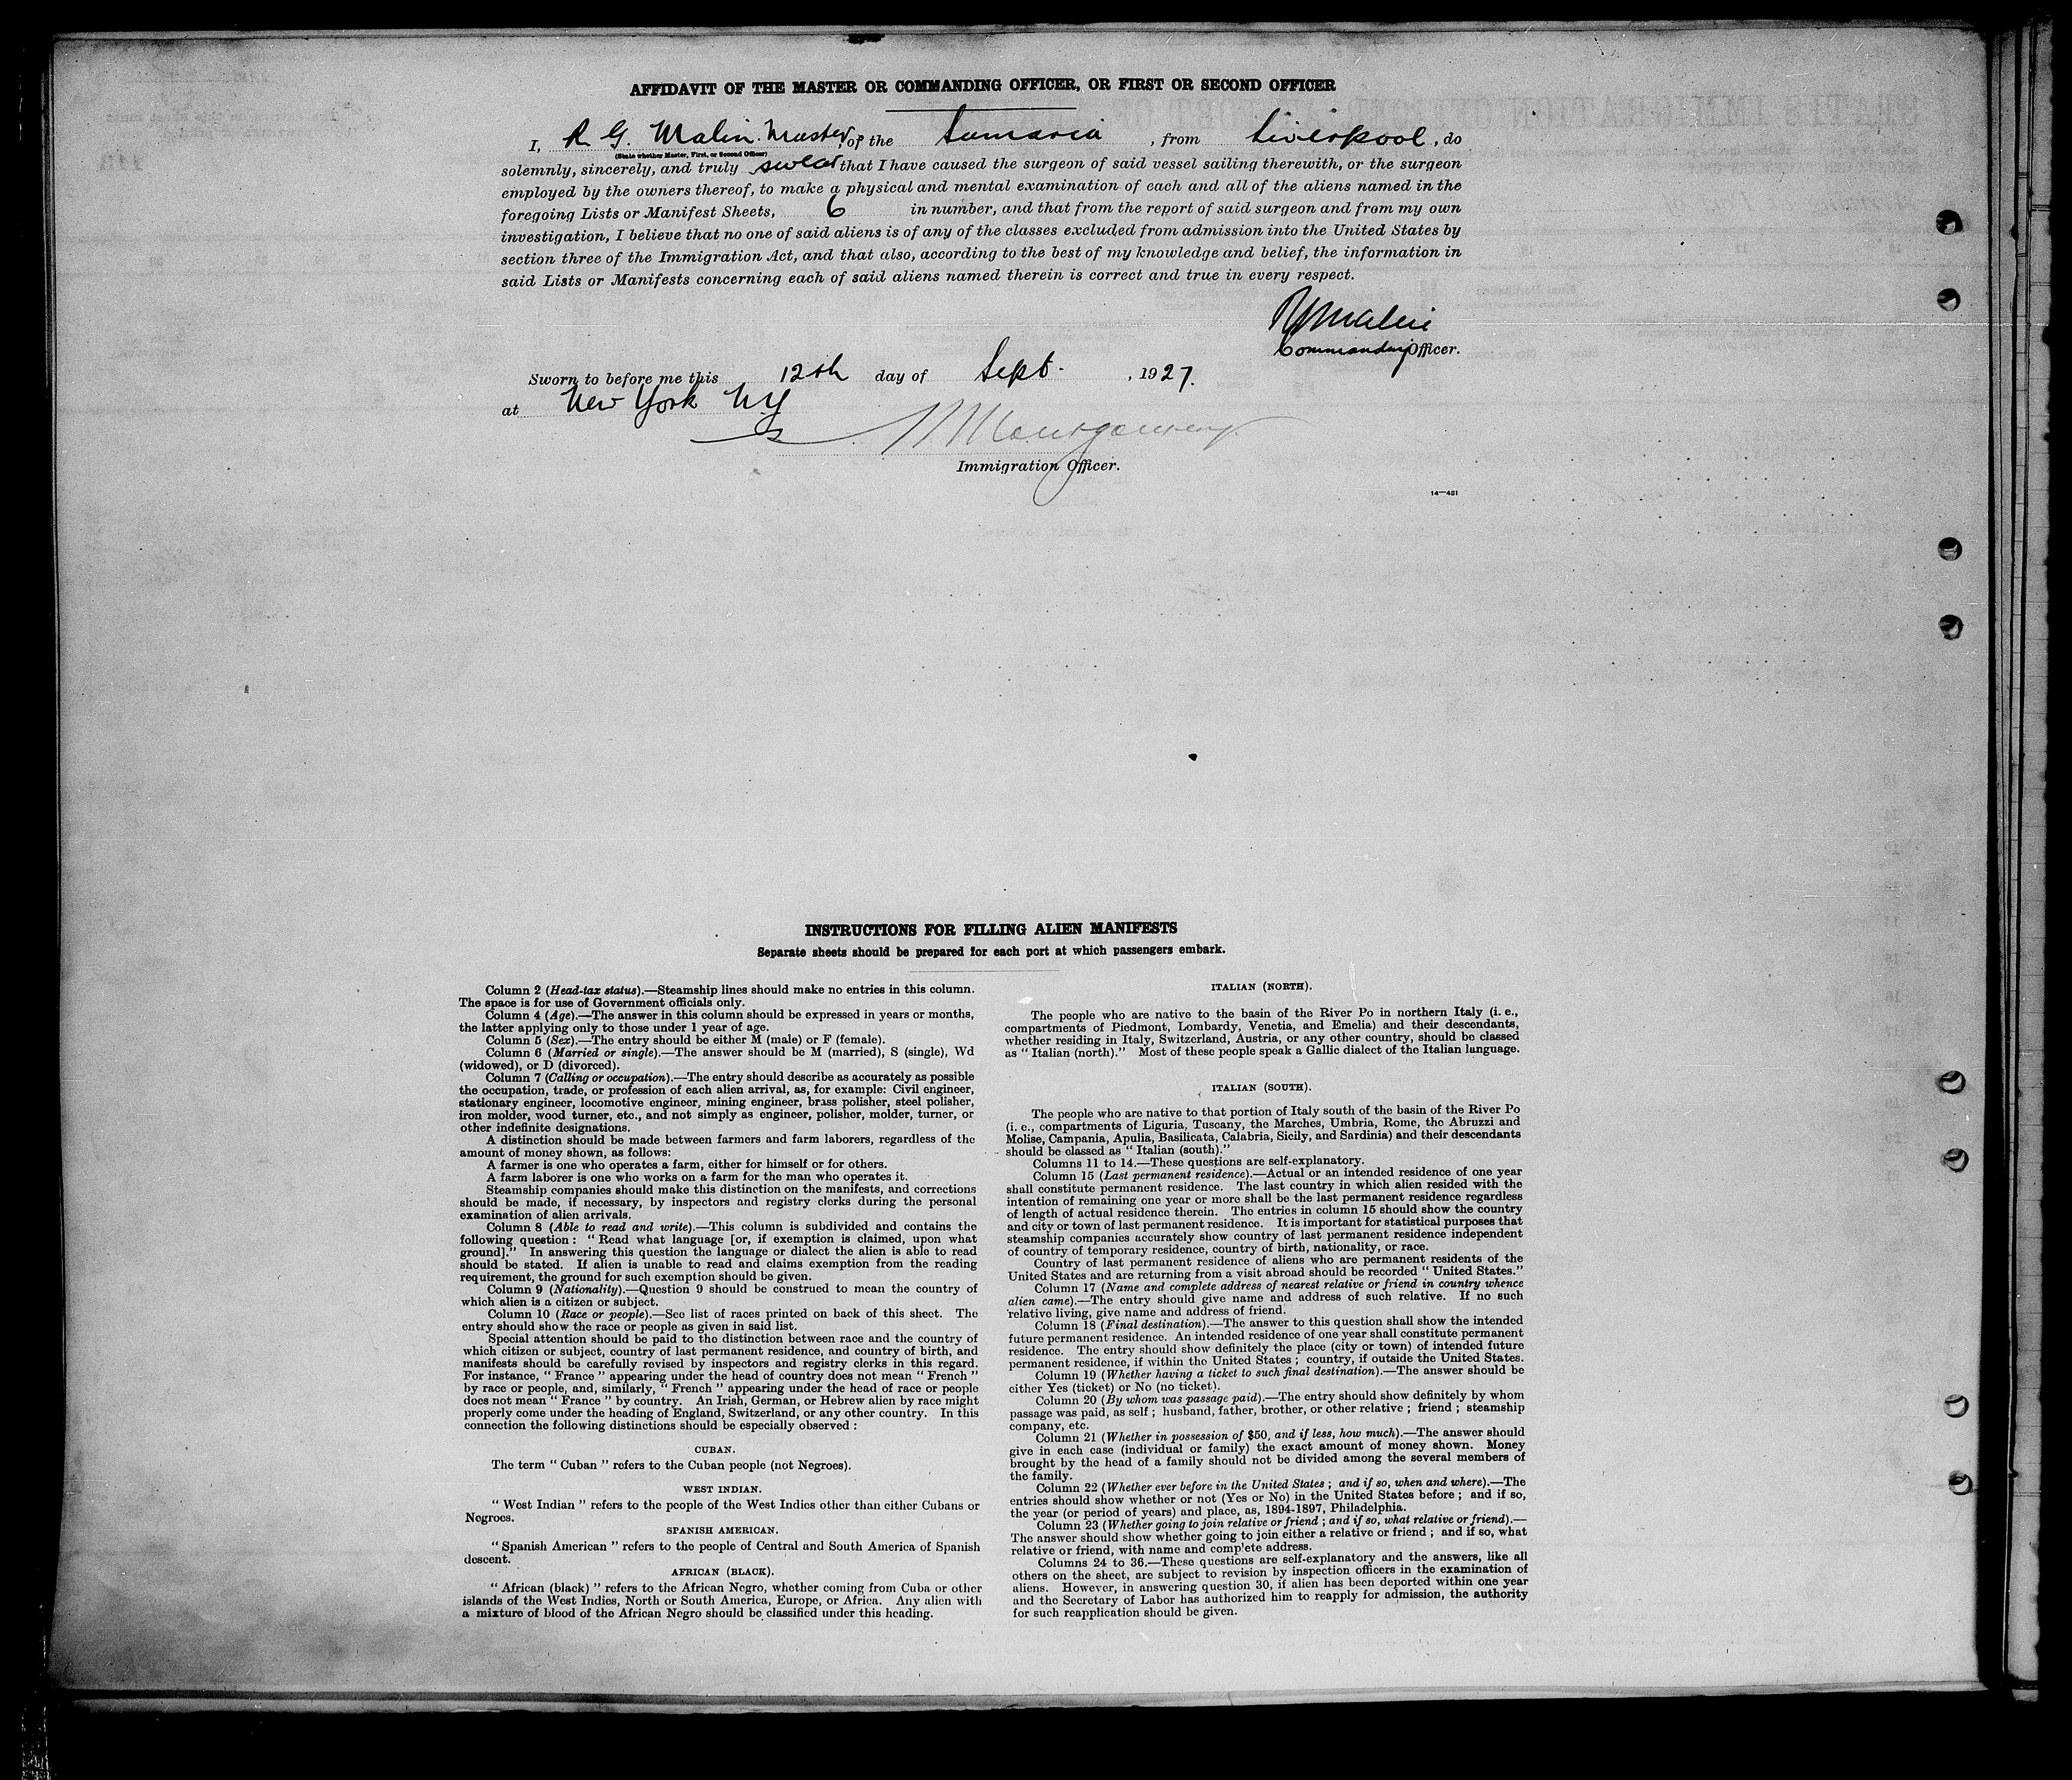 AFFIDAVIT OF THE MASTER OR COMMANDING OFFICER, OR FIRST OR SECOND OFFICER
I, R G. Malin. Master, of the Samaria, from Liverpool, do
(State whether Master, First, or Second Officer)
solemnly, sincerely, and truly swear that I have caused the surgeon of said vessel sailing therewith, or the surgeon
employed by the owners thereof, to make a physical and mental examination of each and all of the aliens named in the
foregoing Lists or Manifest Sheets, 6 in number, and that from the report of said surgeon and from my own
investigation, I believe that no one of said aliens is of any of the classes excluded from admission into the United States by
section three of the Immigration Act, and that also, according to the best of my knowledge and belief, the information in
said Lists or Manifests concerning each of said aliens named therein is correct and true in every respect.
RGMalin
Commanding Officer.
Sworn to before me this 12th day of Sept., 1927.
at New York N.Y
Montgomery
Immigration Officer.
14—431
INSTRUCTIONS FOR FILLING ALIEN MANIFESTS
Separate sheets should be prepared for each port at which passengers embark.
Column 2 (Head-tax status).—Steamship lines should make no entries in this column.
The space is for use of Government officials only.
Column 4 (Age).—The answer in this column should be expressed in years or months,
the latter applying only to those under 1 year of age.
Column 5 (Sex).—The entry should be either M (male) or F (female).
Column 6 (Married or single).—The answer should be M (married), S (single), Wd
(widowed), or D (divorced).
Column 7 (Calling or occupation).—The entry should describe as accurately as possible
the occupation, trade, or profession of each alien arrival, as, for example: Civil engineer,
stationary engineer, locomotive engineer, mining engineer, brass polisher, steel polisher,
iron molder, wood turner, etc., and not simply as engineer, polisher, molder, turner, or
other indefinite designations.
A distinction should be made between farmers and farm laborers, regardless of the
amount of money shown, as follows:
A farmer is one who operates a farm, either for himself or for others.
A farm laborer is one who works on a farm for the man who operates it.
Steamship companies should make this distinction on the manifests, and corrections
should be made, if necessary, by inspectors and registry clerks during the personal
examination of alien arrivals.
Column 8 (Able to read and write).—This column is subdivided and contains the
following question: “Read what language [or, if exemption is claimed, upon what
ground].” In answering this question the language or dialect the alien is able to read
should be stated. If alien is unable to read and claims exemption from the reading
requirement, the ground for such exemption should be given.
Column 9 (Nationality).—Question 9 should be construed to mean the country of
which alien is a citizen or subject.
Column 10 (Race or people).—See list of races printed on back of this sheet. The
entry should show the race or people as given in said list.
Special attention should be paid to the distinction between race and the country of
which citizen or subject, country of last permanent residence, and country of birth, and
manifests should be carefully revised by inspectors and registry clerks in this regard.
For instance, “France” appearing under the head of country does not mean “French”
by race or people, and, similarly, “French” appearing under the head of race or people
does not mean “France” by country. An Irish, German, or Hebrew alien by race might
properly come under the heading of England, Switzerland, or any other country. In this
connection the following distinctions should be especially observed:
CUBAN.
The term “Cuban” refers to the Cuban people (not Negroes).
WEST INDIAN.
“West Indian” refers to the people of the West Indies other than either Cubans or
Negroes.
SPANISH AMERICAN.
“Spanish American” refers to the people of Central and South America of Spanish
descent.
AFRICAN (BLACK).
“African (black)” refers to the African Negro, whether coming from Cuba or other
islands of the West Indies, North or South America, Europe, or Africa. Any alien with
a mixture of blood of the African Negro should be classified under this heading.
ITALIAN (NORTH).
The people who are native to the basin of the River Po in northern Italy (i. e.,
compartments of Piedmont, Lombardy, Venetia, and Emelia) and their descendants,
whether residing in Italy, Switzerland, Austria, or any other country, should be classed
as “Italian (north).” Most of these people speak a Gallic dialect of the Italian language.
ITALIAN (SOUTH).
The people who are native to that portion of Italy south of the basin of the River Po
(i. e., compartments of Liguria, Tuscany, the Marches, Umbria, Rome, the Abruzzi and
Molise, Campania, Apulia, Basilicata, Calabria, Sicily, and Sardinia) and their descendants
should be classed as “Italian (south).”
Columns 11 to 14.—These questions are self-explanatory.
Column 15 (Last permanent residence).—Actual or an intended residence of one year
shall constitute permanent residence. The last country in which alien resided with the
intention of remaining one year or more shall be the last permanent residence regardless
of length of actual residence therein. The entries in column 15 should show the country
and city or town of last permanent residence. It is important for statistical purposes that
steamship companies accurately show country of last permanent residence independent
of country of temporary residence, country of birth, nationality, or race.
Country of last permanent residence of aliens who are permanent residents of the
United States and are returning from a visit abroad should be recorded “United States.”
Column 17 (Name and complete address of nearest relative or friend in country whence
alien came).—The entry should give name and address of such relative. If no such
relative living, give name and address of friend.
Column 18 (Final destination).—The answer to this question shall show the intended
future permanent residence. An intended residence of one year shall constitute permanent
residence. The entry should show definitely the place (city or town) of intended future
permanent residence, if within the United States; country, if outside the United States.
Column 19 (Whether having a ticket to such final destination).—The answer should be
either Yes (ticket) or No (no ticket).
Column 20 (By whom was passage paid).—The entry should show definitely by whom
passage was paid, as self; husband, father, brother, or other relative; friend; steamship
company, etc.
Column 21 (Whether in possession of $50, and if less, how much).—The answer should
give in each case (individual or family) the exact amount of money shown. Money
brought by the head of a family should not be divided among the several members of
the family.
Column 22 (Whether ever before in the United States; and if so, when and where).—The
entries should show whether or not (Yes or No) in the United States before; and if so,
the year (or period of years) and place, as, 1894-1897, Philadelphia.
Column 23 (Whether going to join relative or friend; and if so, what relative or friend).—
The answer should show whether going to join either a relative or friend; and if so, what
relative or friend, with name and complete address.
Columns 24 to 36.—These questions are self-explanatory and the answers, like all
others on the sheet, are subject to revision by inspection officers in the examination of
aliens. However, in answering question 30, if alien has been deported within one year
and the Secretary of Labor has authorized him to reapply for admission, the authority
for such reapplication should be given.